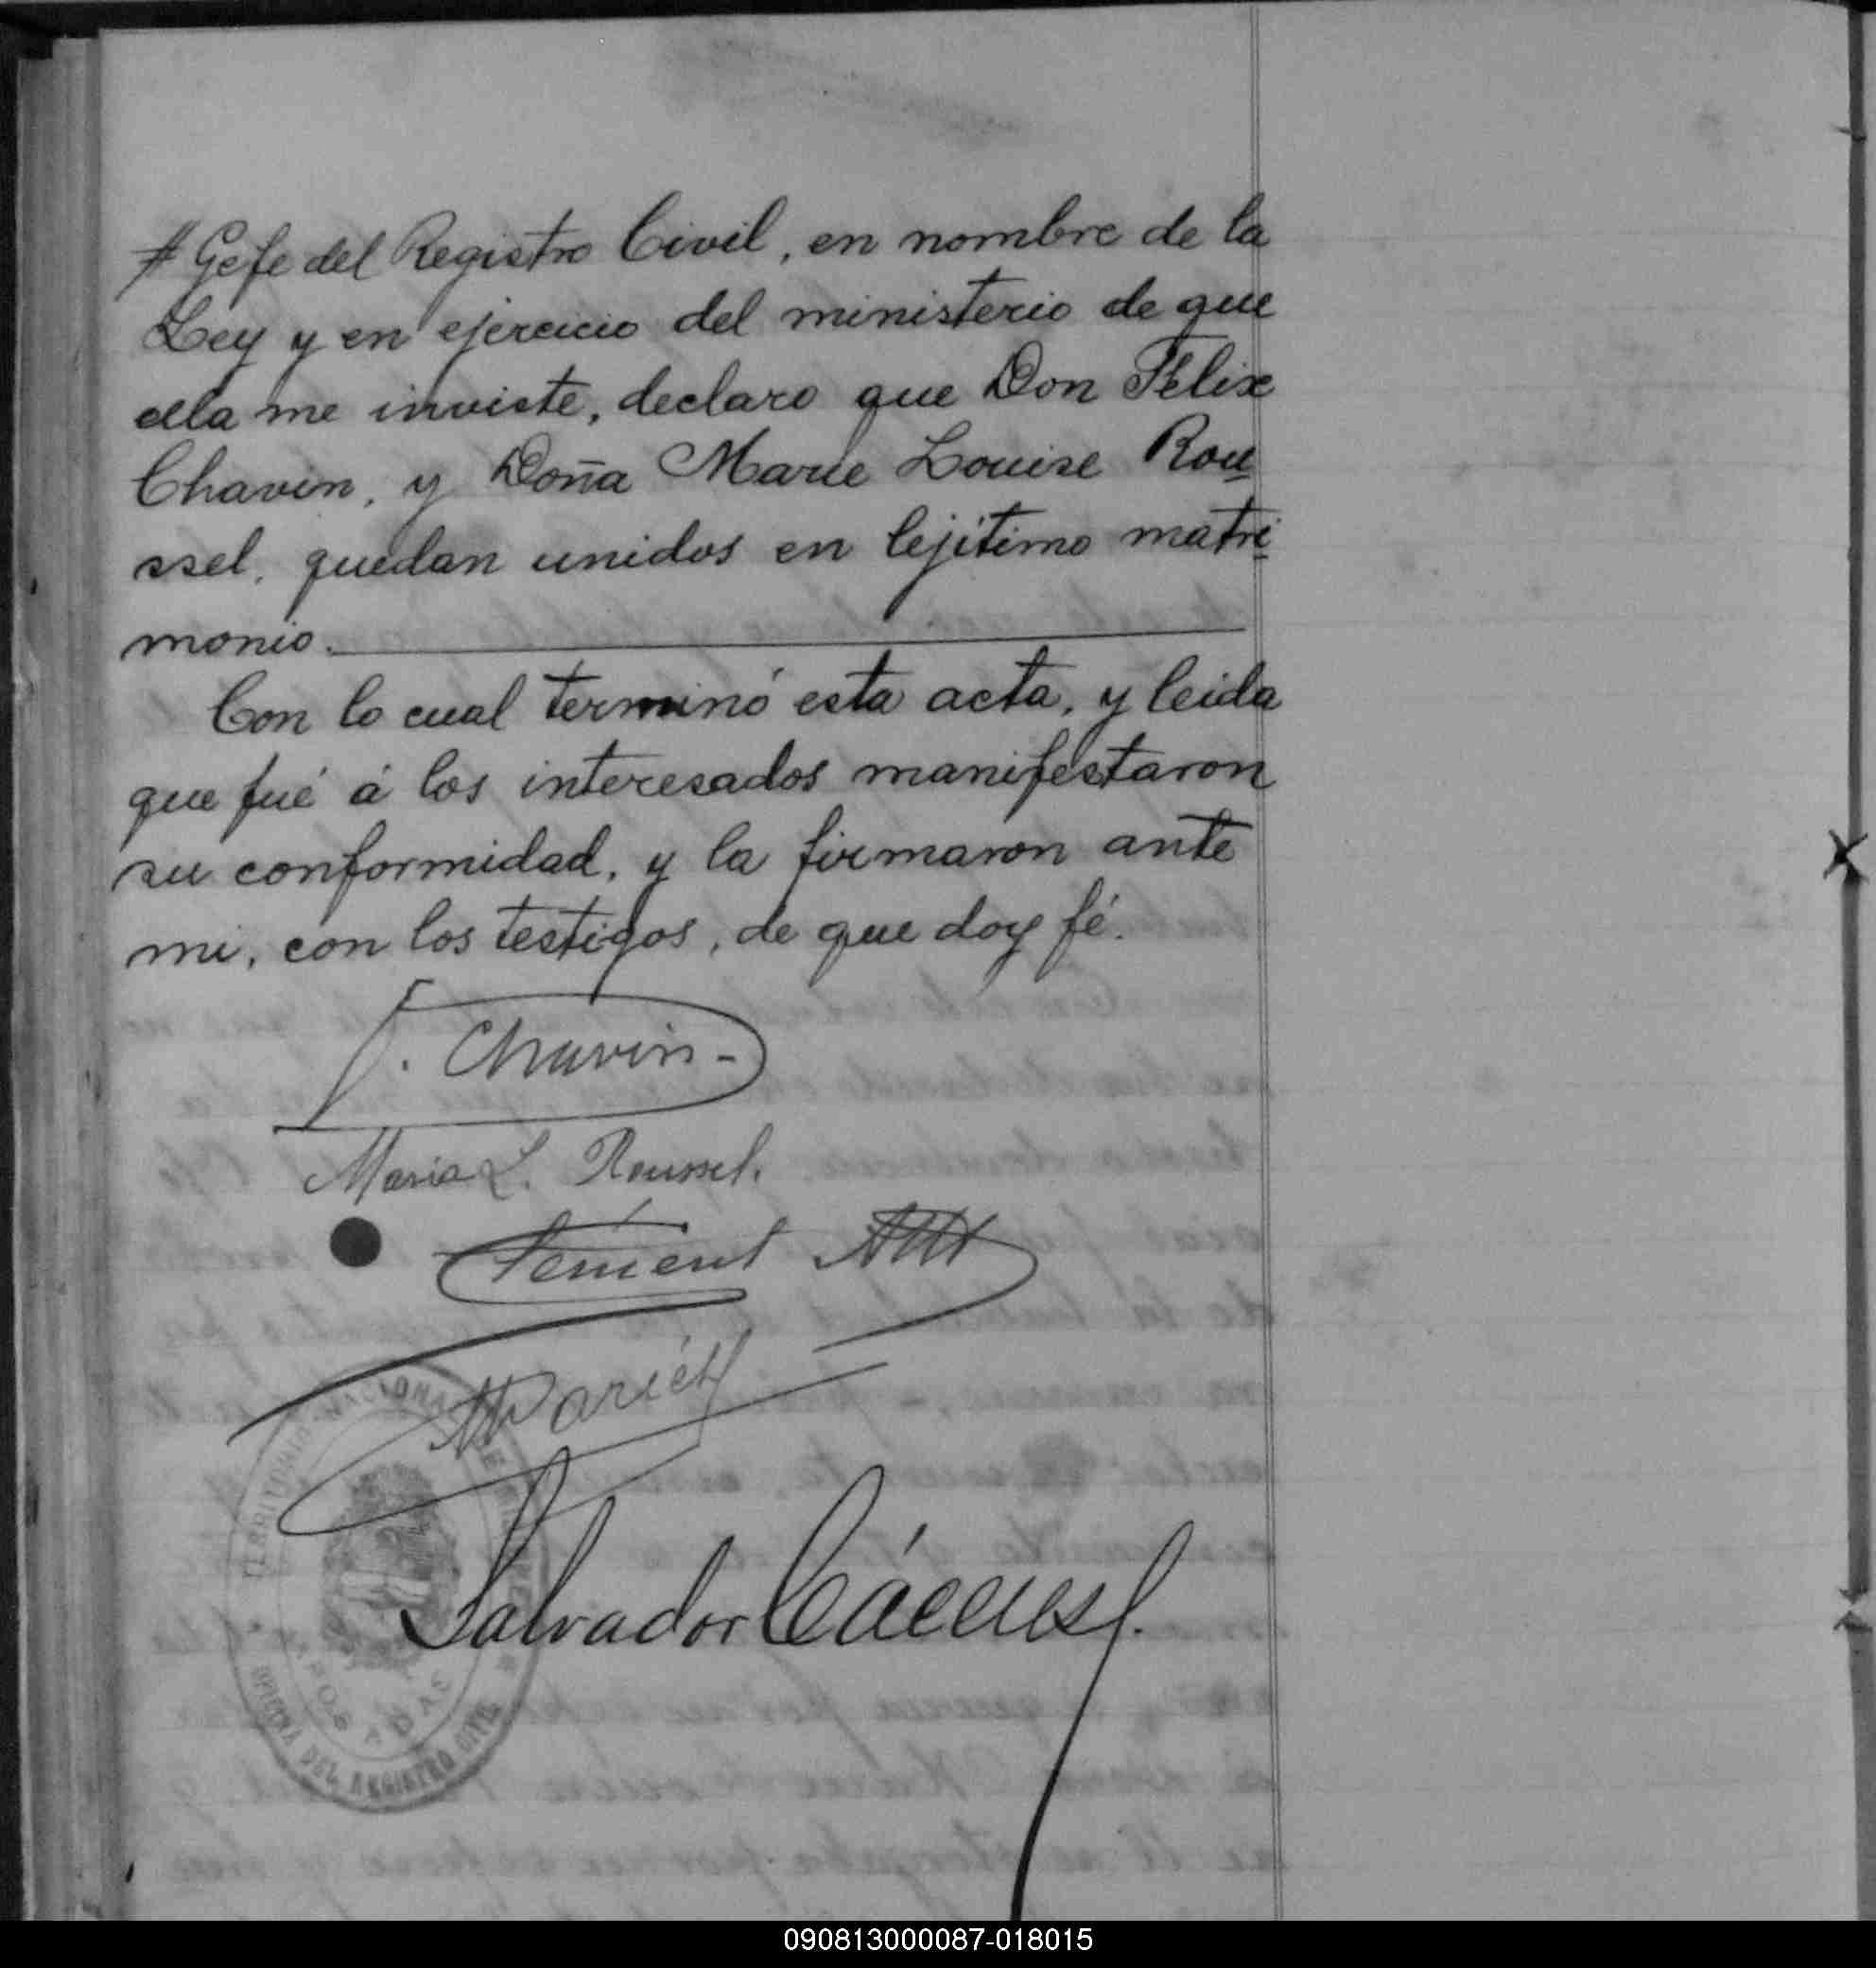 # Gefe del Registro Civil, en nombre de la
Ley y en ejercicio del ministerio de que
ella me inviste, declaro que Don Félix
Chavin, y Doña Marie Louise Rou
ssel, quedan unidos en lejítimo matri
monio.
Con lo cual terminó esta acta, y leida
que fué á los interesados manifestaron
su conformidad, y la firmaron ante
mi, con los testigos, de que doy fé.
F. Chavin
Maria L. Roussel.
Salvador
TERRITORIO NACIONAL DE MISIONES
POSADAS
OFICINA DEL REGISTRO CIVIL
090813000087-018015